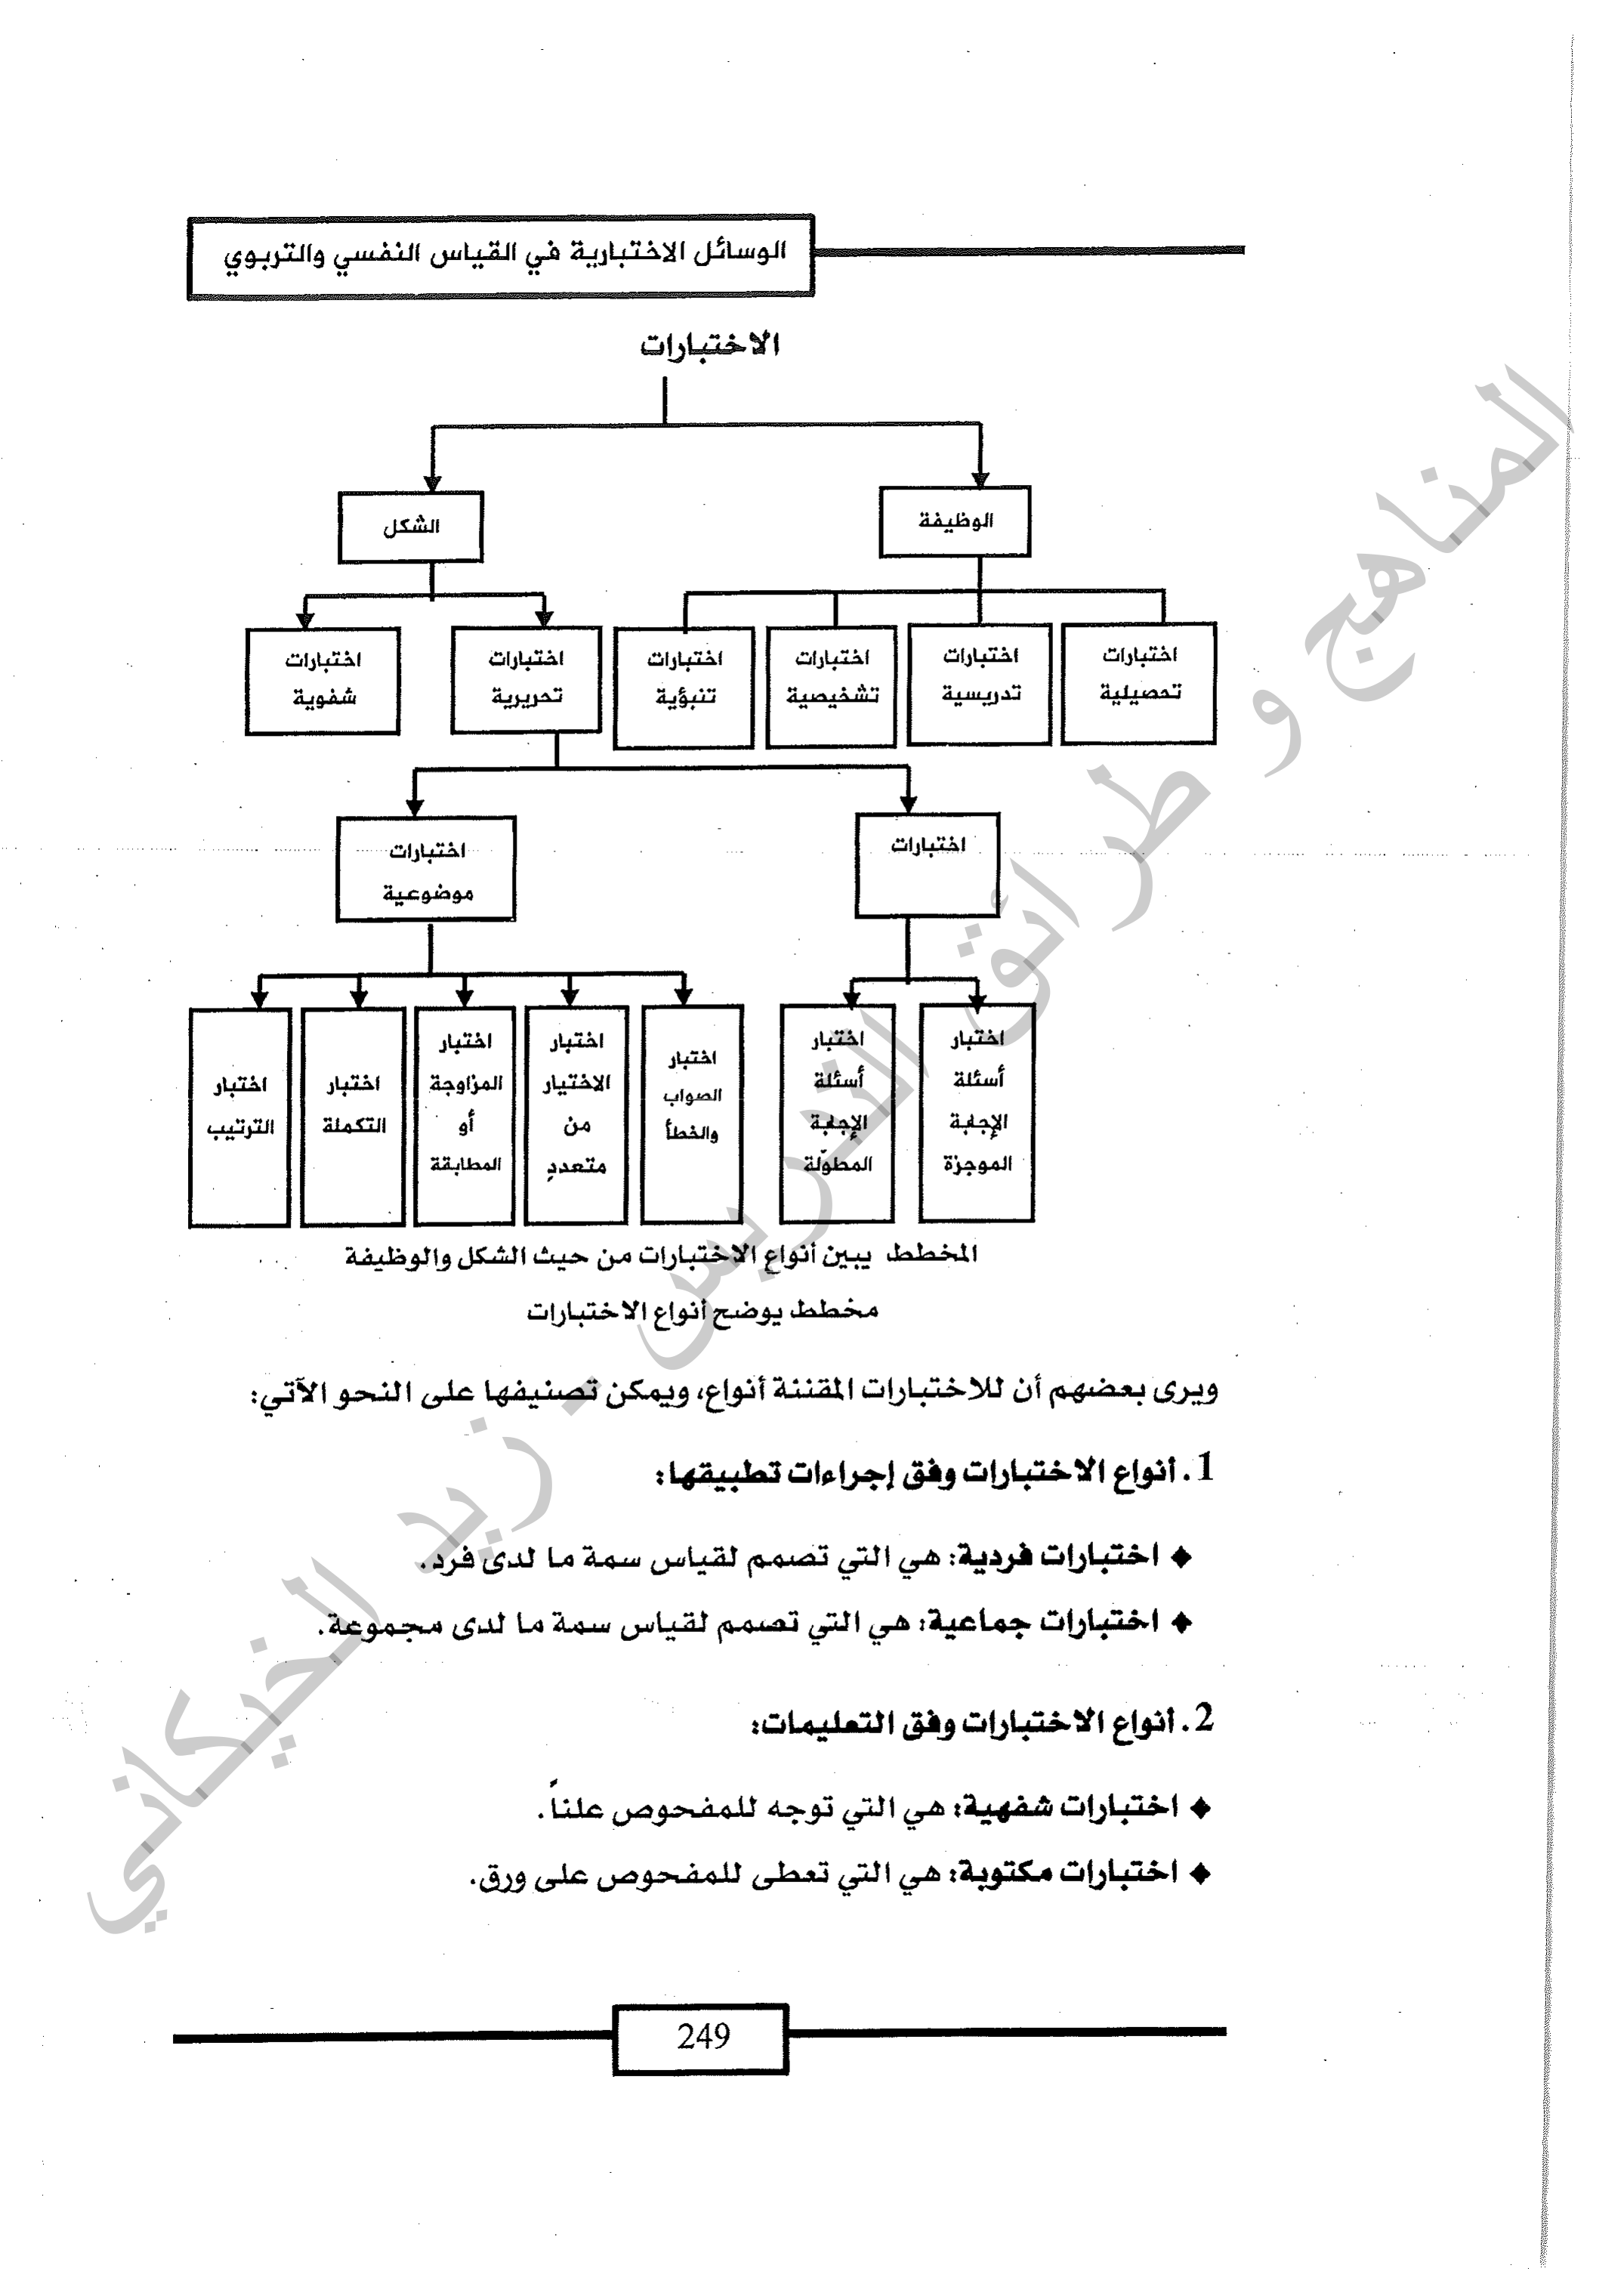 الوسائل الاختبارية في القياس النفسي والتربوي
الاختبارات
الوظيفة
الشكل
اختبارات
تحصيلية
اختبارات
تدريسية
اختبارات
تشخيصية
اختبارات
تنبؤية
اختبارات
تحريرية
اختبارات
شفوية
اختبارات
اختبارات
موضوعية
اختبار
أسئلة
الإجابة
الموجزة
اختبار
أسئلة
الإجابة
المطوّلة
اختبار
الصواب
والخطأ
اختبار
الاختيار
من
متعدد
اختبار
المزاوجة
أو
المطابقة
اختبار
التكملة
اختبار
الترتيب
المخطط يبين أنواع الاختبارات من حيث الشكل والوظيفة
مخطط يوضح أنواع الاختبارات
ويرى بعضهم أن للاختبارات المقننة أنواع، ويمكن تصنيفها على النحو الآتي:
1. أنواع الاختبارات وفق إجراءات تطبيقها:
♦ اختبارات فردية: هي التي تصمم لقياس سمة ما لدى فرد.
♦ اختبارات جماعية: هي التي تصمم لقياس سمة ما لدى مجموعة.
2. أنواع الاختبارات وفق التعليمات:
♦ اختبارات شفهية: هي التي توجه للمفحوص علناً.
♦ اختبارات مكتوبة: هي التي تعطى للمفحوص على ورق.
249
المناهج و طرائق التدريس - زيد الخيكاني